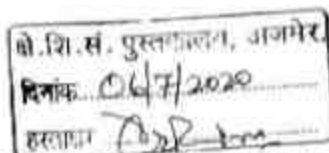 क्षे.शि.सं. पुस्तकालय, अजमेर.
दिनांक...06/7/2020
हस्ताक्षर